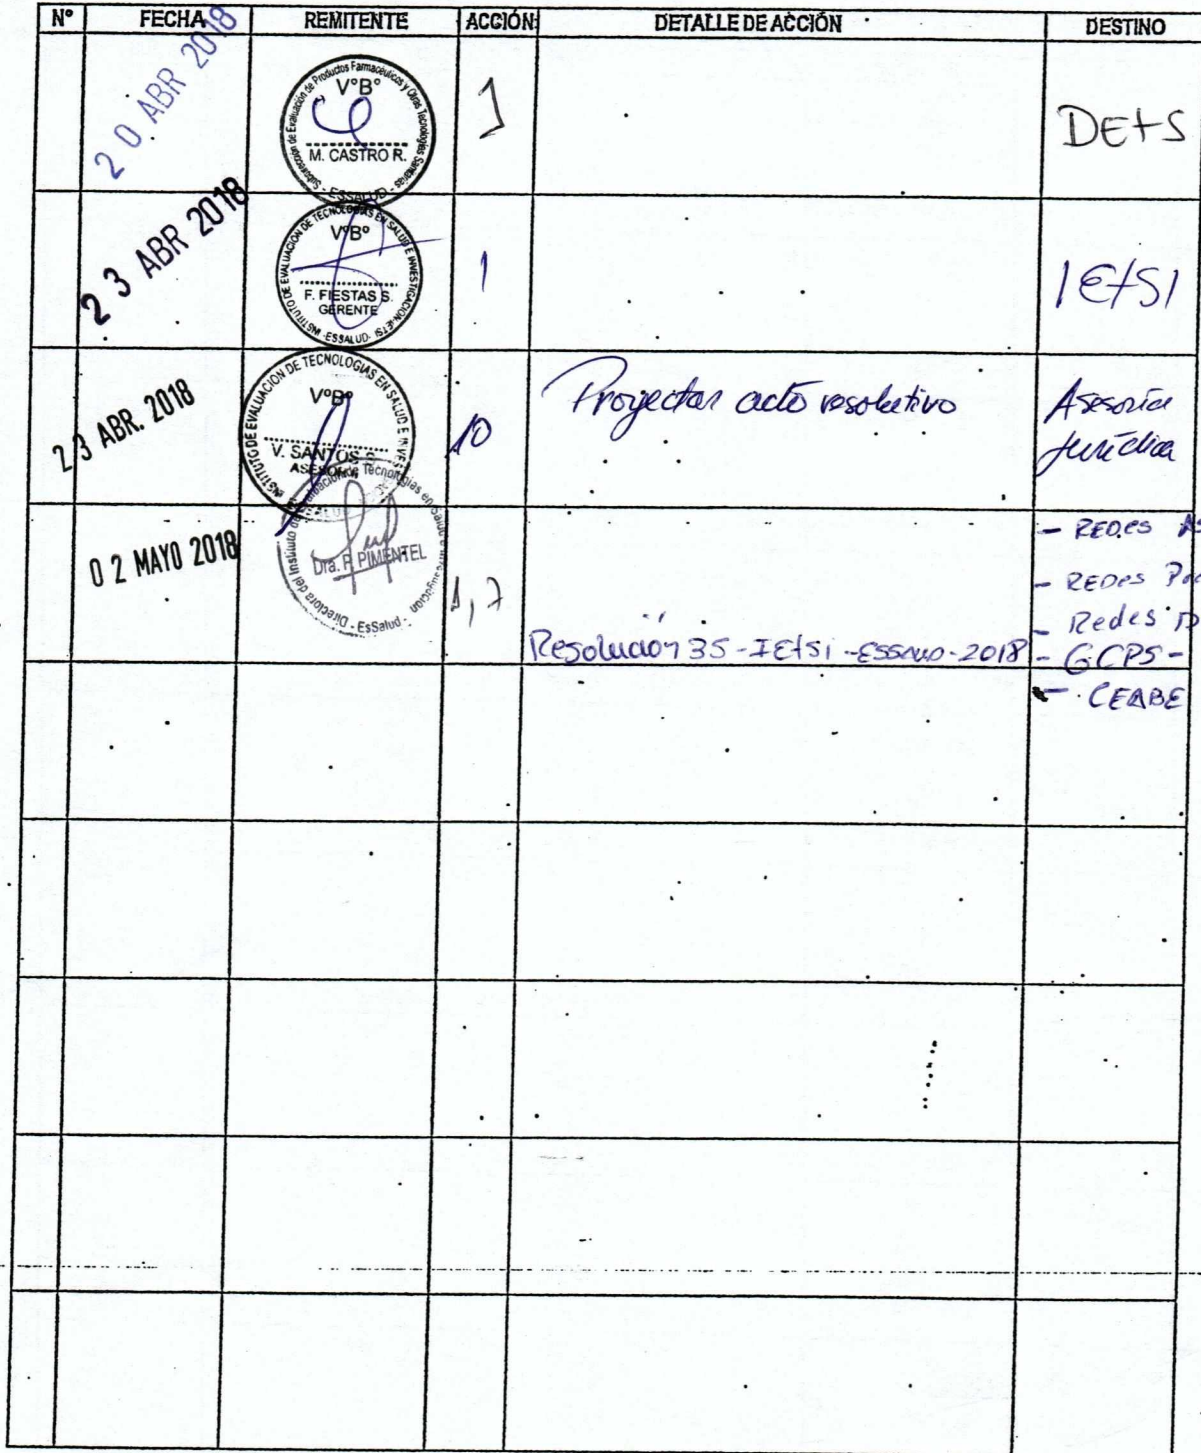 N° FECHA REMITENTE ACCIÓN DETALLE DE ACCIÓN DESTINO
20 ABR 2018
Subdirección de Evaluación de Productos Farmacéuticos y Otras Tecnologías Sanitarias
V°B°
M. CASTRO R.
- ESSALUD -
1
DETS
23 ABR 2018
INSTITUTO DE EVALUACIÓN DE TECNOLOGÍAS EN SALUD E INVESTIGACIÓN-IETSI
V°B°
F. FIESTAS S.
GERENTE
-ESSALUD-
1
IETSI
23 ABR. 2018
INSTITUTO DE EVALUACIÓN DE TECNOLOGÍAS EN SALUD E INVES
V°B°
V. SANTOS
10
Proyectar acto resolutivo
Asesoría
Jurídica
02 MAYO 2018
Directora del Instituto de Evaluación de Tecnologías en Salud e Investigación
Dra. P. PIMENTEL
- EsSalud -
1, 7
Resolución 35-IETSI-ESSALUD-2018
- REDes
- REDes
- Redes
- GCPS -
- CEABE